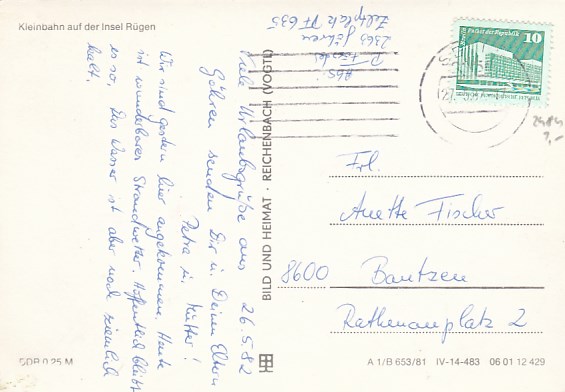 Kleinbahn auf der Insel Rügen
26.5.82
Viele Urlaubsgrüße aus
Göhren senden Dir u. Deinen Eltern
Petra u. Mutter!
Wir sind gestern hier angekommen. Heute
ist wunderbares Strandwetter. Hoffentlich bleibt
es so. Das Wasser ist aber noch ziemlich
kalt.
Abs.:
P.
2363 Göhren
Zeltplatz PF 635
BILD UND HEIMAT · REICHENBACH (VOGTL)
Palast der Republik
10
Frl.
Anette Fischer
8600 Bautzen
Rathenauplatz 2
DDR 0,25 M
A 1/B 653/81 IV-14-483 06 01 12 429